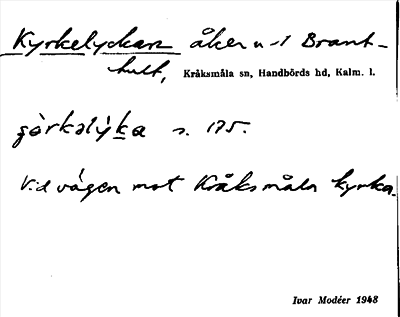 Kyrkelyckan åker u -1 Brant-
hult, Kråksmåla sn, Handbörds hd, Kalm. l.
s. 175.
Vid vägen mot Kråksmåla kyrka.
Ivar Modéer 1948